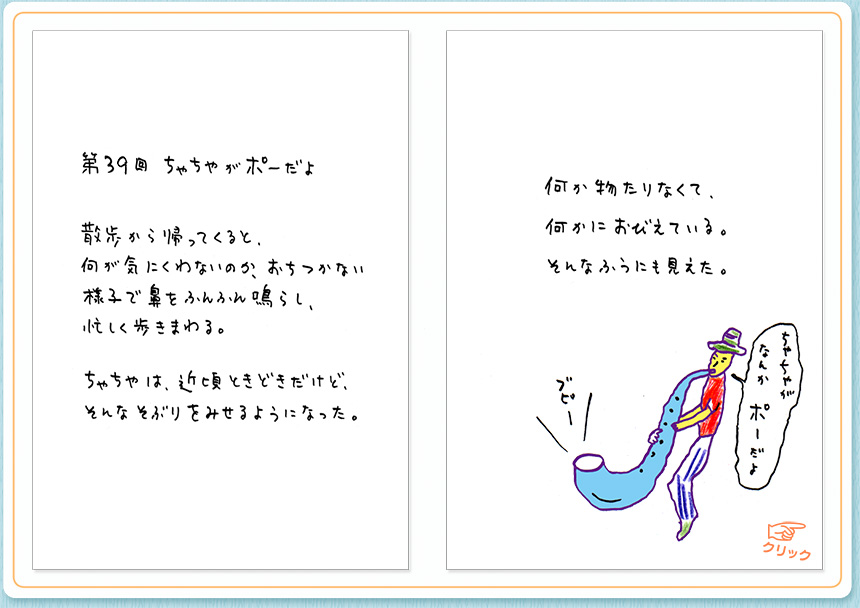 第39回 ちゃちゃがポーだよ
散歩から帰ってくると、
何が気にくわないのか、おちつかない
様子で鼻をふんふん鳴らし、
忙しく歩きまわる。
ちゃちゃは、近頃ときどきだけど、
そんなそぶりをみせるようになった。
何か物たりなくて、
何かにおびえている。
そんなふうにも見えた。
ちゃちゃが
なんか
ポーだよ
ブピー
クリック